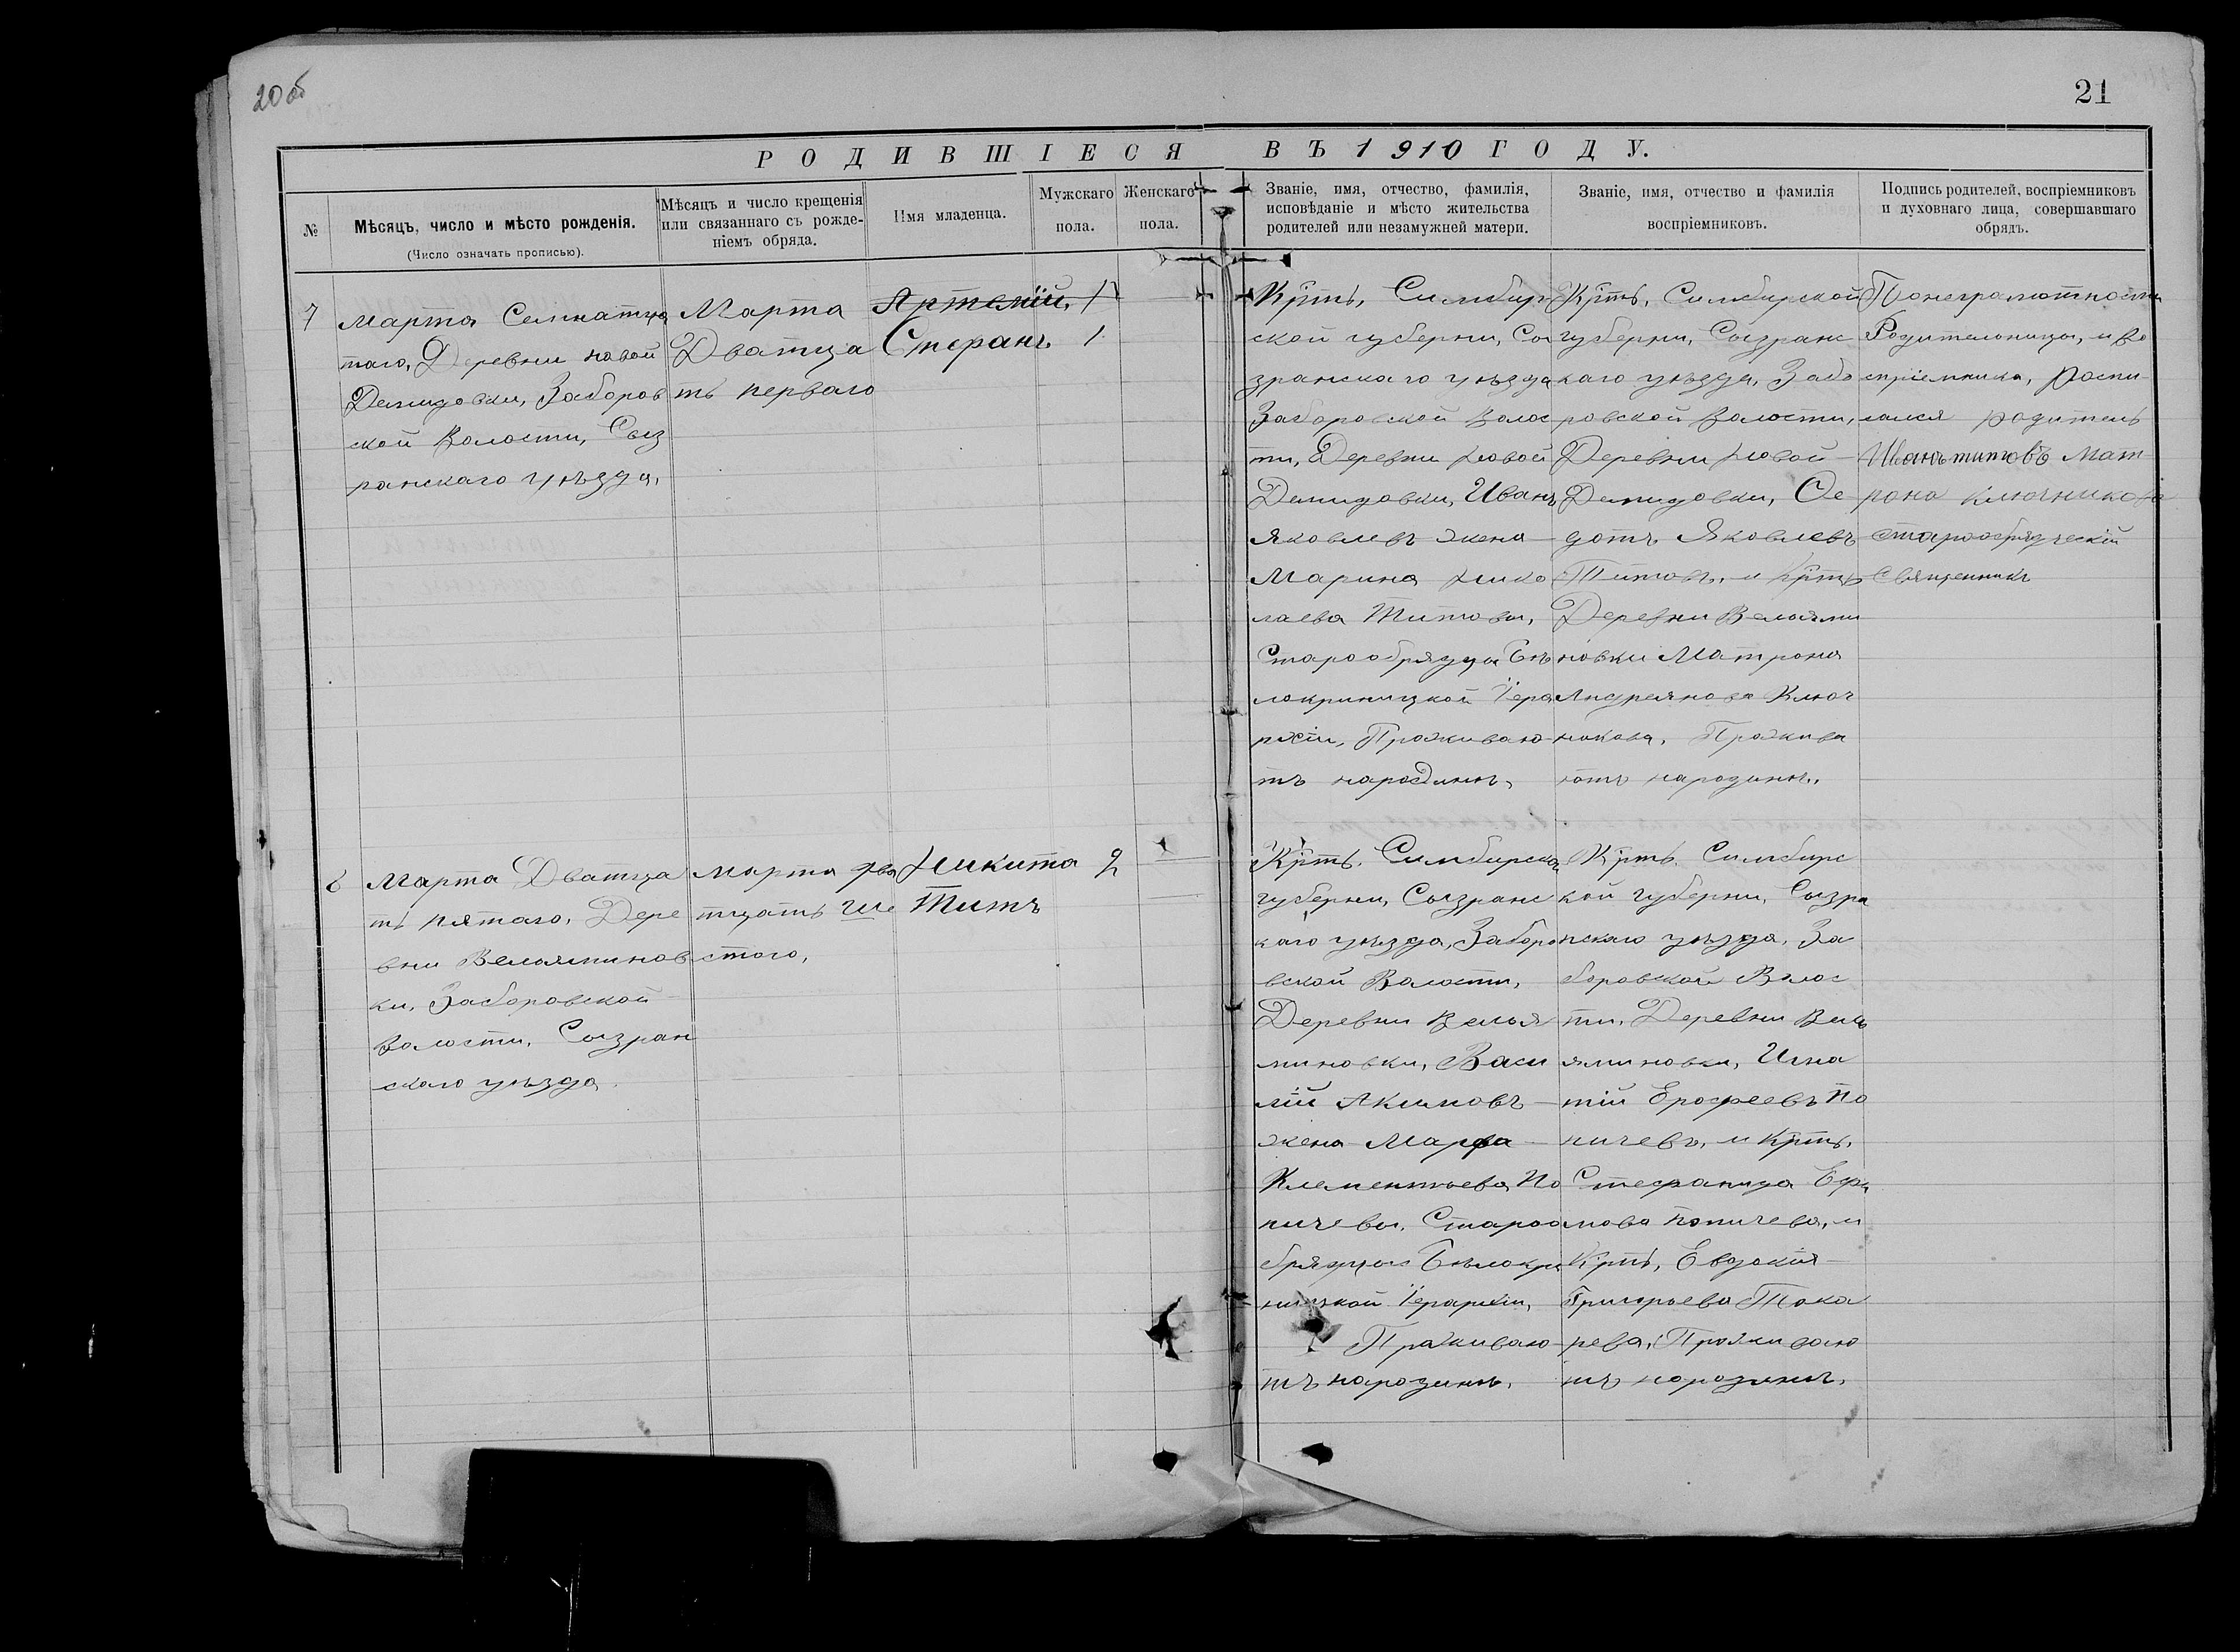 20 об
21
РОДИВШІЕСЯ ВЪ 1910 ГОДУ.
№
Мѣсяцъ, число и мѣсто рожденія.
(Число означать прописью).
Мѣсяцъ и число крещенія
или связаннаго съ рожде-
ніемъ обряда.
Имя младенца.
Мужскаго
пола.
Женскаго
пола.
Званіе, имя, отчество, фамилія,
исповѣданіе и мѣсто жительства
родителей или незамужней матери.
Званіе, имя, отчество и фамилія
воспріемниковъ.
Подпись родителей, воспріемниковъ
и духовнаго лица, совершавшаго
обрядъ.
7
Марта Семнатца
таго, Деревни новой
Демидовки, Заборов
ской Волости, Сыз
ранскаго уѣзда,
Марта
Дватца
ть перваго
Артемій, 1
Стефанъ 1
Крть, Симбир
ской губерни, Сы
зранскаго уѣзда
Заборовской Волос
ти, Деревни Новой
Демидовки, Иванъ
Яковлевъ жена
Марина Нико
лаева Титовы,
Старообрядцы Бѣ
локриницкой Іера
рхіи, Проживаю
тъ народинѣ,
Крть, Симбирской
губерни, Сызранс
каго уѣзда, Забо
ровской Волости,
Деревни Новой
Демидовки, Фе
дотъ Яковлевъ
Титовъ, и Крть
Деревни Вельями
новки Матрона
Андреянова Ключ
никова, Прожива
ютъ народинѣ,
Понеграмотности
Родительницы, и во
спріемника, роспи
лался родитель
Иванъ титовъ Мат
рона ключникова
старообрядческій
Священникъ
8
Марта Дватца
ть пятаго, Дере
вни Вельяминов
ки, Заборовской
Волости, Сызран
скаго уѣзда
марта два
тцать ше
стого,
Никита 2
Титъ
Крть. Симбирской
губерни, Сызранс
каго уѣзда, Заборо
вской Волости,
Деревни Велья
миновки, Васи
лій Акимовъ
жена Марфа
Клементьева По
пичевы, Староо
брядцы Бѣлокри
ницкой Іерархіи,
Проживаю
тъ народинѣ,
Крть. Симбирс
кой губерни, Сызра
нскаго уѣзда, За
боровской Волос
ти, Деревни Вель
яминовки, Игна
тій Ерофеевъ По
пичевъ, и Крть,
Стефанида Ефи
мова попичева, и
Крть, Евдокія
Григорьева Тока
рева, Проживаю
тъ народинѣ,